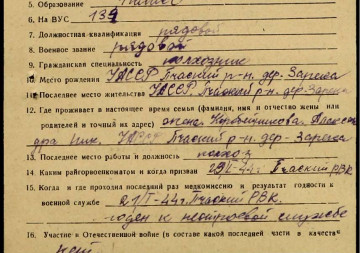 5. Образование
6. На ВУС 134
7. Должностная квалификация рядовой
8. Военное звание рядовой
9. Гражданская специальность колхозник
10. Место рождения УАССР Пчаский р-н. дер. Зарека
11. Последнее место жительства УАССР Пчаский р-н. дер. Зарека
12. Где проживает в настоящее время семья (фамилия, имя и отчество жены или
родителей и точный адрес) жена Алексан
дра Ник. УАССР Пчаский р-н. дер- Зарека
13. Последнее место работы и должность колхоз
14. Каким райгорвоенкоматом и когда призван 44г. Пчаский РВК.
15. Когда и где проходил последний раз медкомиссию и результат годности к
военной службе 44г Пчаский РВК.
годен к нестроевой службе
16. Участие в Отечественной войне (в составе какой последней части в качестве
нет